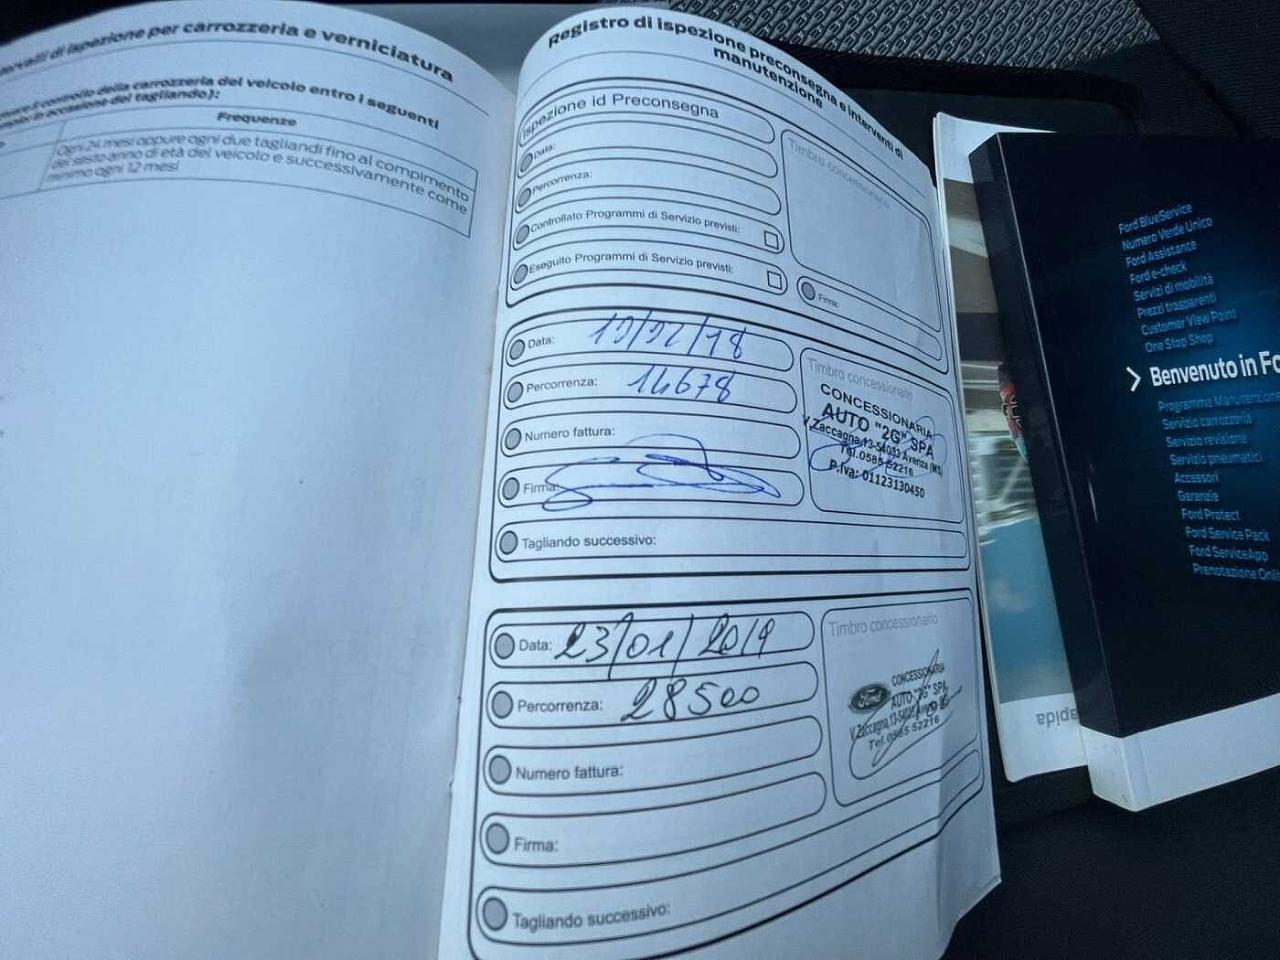 ervalli di ispezione per carrozzeria e verniciatura
controllo della carrozzeria del veicolo entro i seguenti
in occasione del tagliando):
Frequenze
Ogni 24 mesi oppure ogni due tagliandi fino al compimento
del sesto anno di età del veicolo e successivamente come
minimo ogni 12 mesi
Registro di ispezione preconsegna e interventi di
manutenzione
Ispezione id Preconsegna
Data:
Percorrenza:
Controllato Programmi di Servizio previsti:
Eseguito Programmi di Servizio previsti:
Timbro concessionario
Firma:
Data: 19/02/18
Percorrenza: 14678
Numero fattura:
Firma:
Tagliando successivo:
Timbro concessionario
CONCESSIONARIA
AUTO "2G" SPA
V.Zaccagna,13-54033 Avenza (MS)
Tel.0585 52216
P.Iva: 01123130450
Data: 23/01/2019
Percorrenza: 28500
Numero fattura:
Firma:
Tagliando successivo:
Timbro concessionario
Ford
CONCESSIONARIA
AUTO "2G" SPA
V.Zaccagna,13-54033 Avenza
Tel.0585 52216
apida
Ford BlueService
Numero Verde Unico
Ford Assistance
Ford e-check
Servizi di mobilità
Prezzi trasparenti
Customer View Point
One Stop Shop
Benvenuto in Fo
Programma Manutenzione
Servizio carrozzeria
Servizio revisione
Servizio pneumatici
Accessori
Garanzie
Ford Protect
Ford Service Pack
Ford ServiceApp
Prenotazione Onl